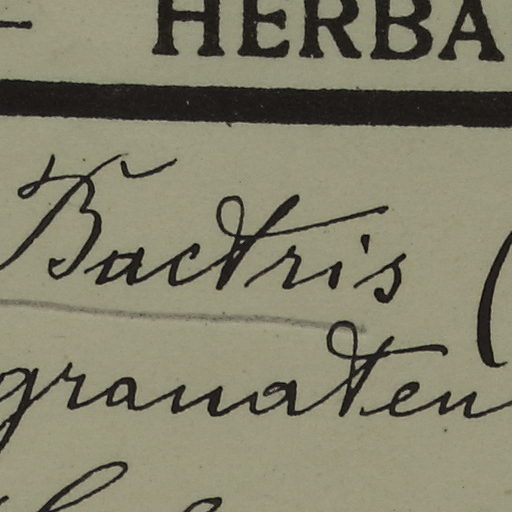 HERBA
Bactris (
granaten